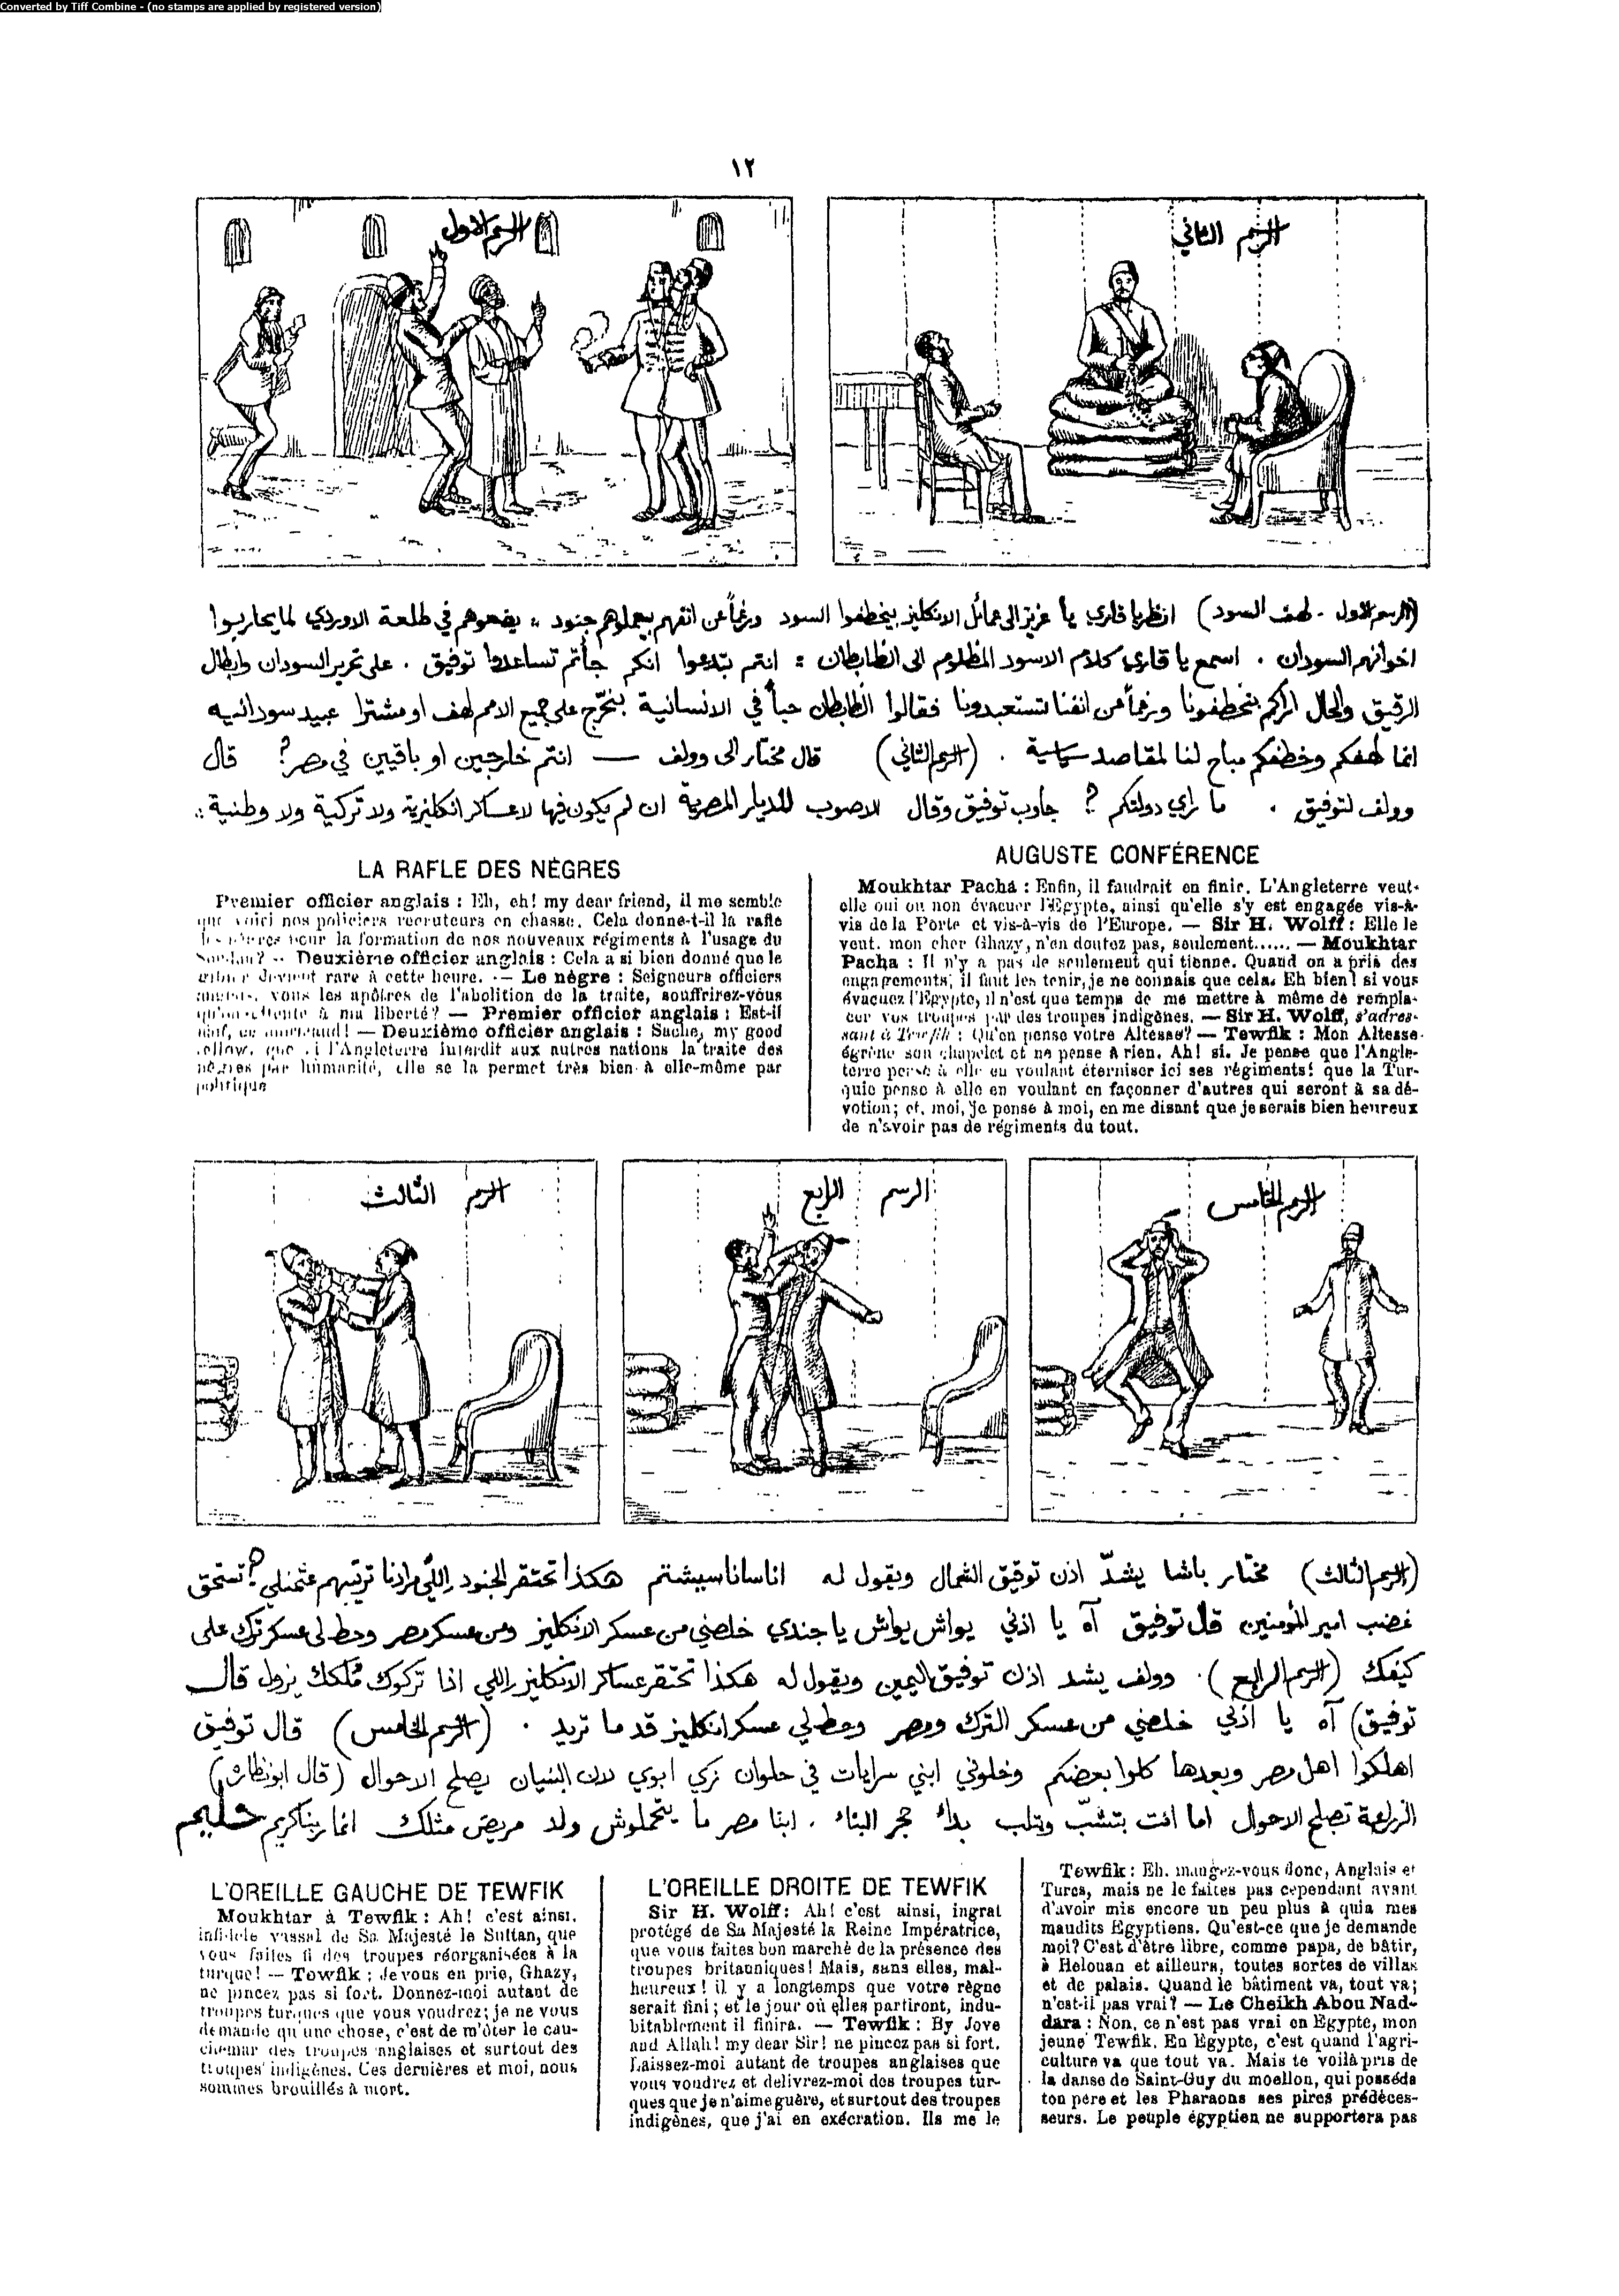 Converted by Tiff Combine - (no stamps are applied by registered version)
١٢
الرسم الاول
الرسم الثاني
(الرسم الاول - لهف السود) انظر يا قاري يا عزيز الى عمائل الانكليز بيخطفوا السود ورغماً عن انفهم بيعملوهم جنود ،، يضعوهم في طلعة الاوردي لما يحاربوا
اخوانهم السودان . اسمع يا قاري كلام الاسود المظلوم الى الظابطان : انتم بتدعوا انكم جأتم تساعدوا توفيق . على تحرير السودان وابطال
الرقيق والحال اراكم بتخطفونا ورغماً من انفنا تستعبدونا فقالوا الظابطان حباً في الانسانية بنحرّج على جميع الامم لهف او مشترا عبيد سودانيه
انما لهفكم وخطفكم مباح لنا لمقاصد سياسية . (الرسم الثاني) قال مختار الى وولف — انتم خارجين او باقيين في مصر؟ قال
وولف لتوفيق . ما راي دولتكم ؟ جاوب توفيق وقال الاصوب للديار المصرية ان لم يكون فيها لا عساكر انكليزية ولا تركية ولا وطنية
LA RAFLE DES NÈGRES
Premier officier anglais : Eh, eh! my dear friend, il me semble
que voici nos policiers recruteurs en chasse. Cela donne-t-il la rafle
des nègres pour la formation de nos nouveaux régiments à l'usage du
Soudan? — Deuxième officier anglais : Cela a si bien donné que le
gibier devient rare à cette heure. — Le nègre : Seigneurs officiers
anglais, vous les apôtres de l'abolition de la traite, souffrirez-vous
qu'on attente à ma liberté? — Premier officier anglais : Est-il
naïf, ce moricaud! — Deuxième officier anglais : Sache, my good
fellow, que si l'Angleterre interdit aux autres nations la traite des
nègres par humanité, elle se la permet très bien à elle-même par
politique
AUGUSTE CONFÉRENCE
Moukhtar Pacha : Enfin, il faudrait en finir. L'Angleterre veut-
elle oui ou non évacuer l'Égypte, ainsi qu'elle s'y est engagée vis-à-
vis de la Porte et vis-à-vis de l'Europe. — Sir H. Wolff : Elle le
veut. mon cher Ghazy, n'en doutez pas, seulement...... — Moukhtar
Pacha : Il n'y a pas de seulement qui tienne. Quand on a pris des
engagements, il faut les tenir, je ne connais que cela. Eh bien! si vous
évacuez l'Égypte, il n'est que temps de me mettre à même de rempla-
cer vos troupes par des troupes indigènes. — Sir H. Wolff, s'adres-
sant à Tewfik : Qu'en pense votre Altesse? — Tewfik : Mon Altesse
égrène son chapelet et ne pense à rien. Ah! si. Je pense que l'Angle-
terre pense à elle en voulant éterniser ici ses régiments! que la Tur-
quie pense à elle en voulant en façonner d'autres qui seront à sa dé-
votion; et, moi, je pense à moi, en me disant que je serais bien heureux
de n'avoir pas de régiments du tout.
الرسم الثالث
الرسم الرابع
الرسم الخامس
(الرسم الثالث) مختار باشا يشدّ اذن توفيق الشمال ويقول له اناسانا سيشتم هكذا تحتقر الجنود اللي مرادنا ترتيبهم عثمنلي؟ تستحق
غضب امير المؤمنين قال توفيق آه يا اذني يواش يواش يا جندي خلصني من عسكر الانكليز ومن عسكر مصر وحط لي عسكر ترك على
كيفك (الرسم الرابع) . وولف يشد اذن توفيق اليمين ويقول له هكذا تحتقر عساكر الانكليز اللي اذا تركوك مُلكك يزول قال
توفيق) آه يا اذني خلصني من عسكر الترك ومصر وحط لي عسكر انكليز قد ما تريد . (الرسم الخامس) قال توفيق
اهلكوا اهل مصر وبعدها كلوا بعضكم وخلوني ابني سرايات في حلوان زي ابوي لان البنيان يصلح الاحوال (قال ابو نظارة)
الزراعة تصلح الاحوال اما انت بتشبّ وتلب بداء حجر البناء . ابنا مصر ما يتحملوش ولد مريض مثلك انما ربنا كريم حليم
L'OREILLE GAUCHE DE TEWFIK
Moukhtar à Tewfik : Ah! c'est ainsi,
infidèle vassal de Sa Majesté le Sultan, que
vous faites fi des troupes réorganisées à la
turque! — Tewfik : Je vous en prie, Ghazy,
ne pincez pas si fort. Donnez-moi autant de
troupes turques que vous voudrez; je ne vous
demande qu'une chose, c'est de m'ôter le cau-
chemar des troupes anglaises et surtout des
troupes indigènes. Ces dernières et moi, nous
sommes brouillés à mort.
L'OREILLE DROITE DE TEWFIK
Sir H. Wolff : Ah! c'est ainsi, ingrat
protégé de Sa Majesté la Reine Impératrice,
que vous faites bon marché de la présence des
troupes britanniques! Mais, sans elles, mal-
heureux! il y a longtemps que votre règne
serait fini; et le jour où elles partiront, indu-
bitablement il finira. — Tewfik : By Jove
and Allah! my dear Sir! ne pincez pas si fort.
Laissez-moi autant de troupes anglaises que
vous voudrez et delivrez-moi des troupes tur-
ques que je n'aime guère, et surtout des troupes
indigènes, que j'ai en exécration. Ils me le
Tewfik : Eh. mangez-vous donc, Anglais et
Turcs, mais ne le faites pas cependant avant
d'avoir mis encore un peu plus à quia mes
maudits Egyptiens. Qu'est-ce que je demande
moi? C'est d'être libre, comme papa, de bâtir,
à Helouan et ailleurs, toutes sortes de villas
et de palais. Quand le bâtiment va, tout va;
n'est-il pas vrai? — Le Cheikh Abou Nad-
dara : Non, ce n'est pas vrai en Egypte, mon
jeune Tewfik. En Egypte, c'est quand l'agri-
culture va que tout va. Mais te voilà pris de
la danse de Saint-Guy du moellon, qui posséda
ton père et les Pharaons ses pires prédéces-
seurs. Le peuple égyptien ne supportera pas